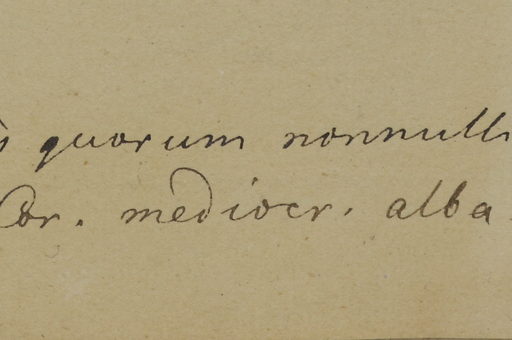 quorum nonnulli
Cor. mediocr. alba.